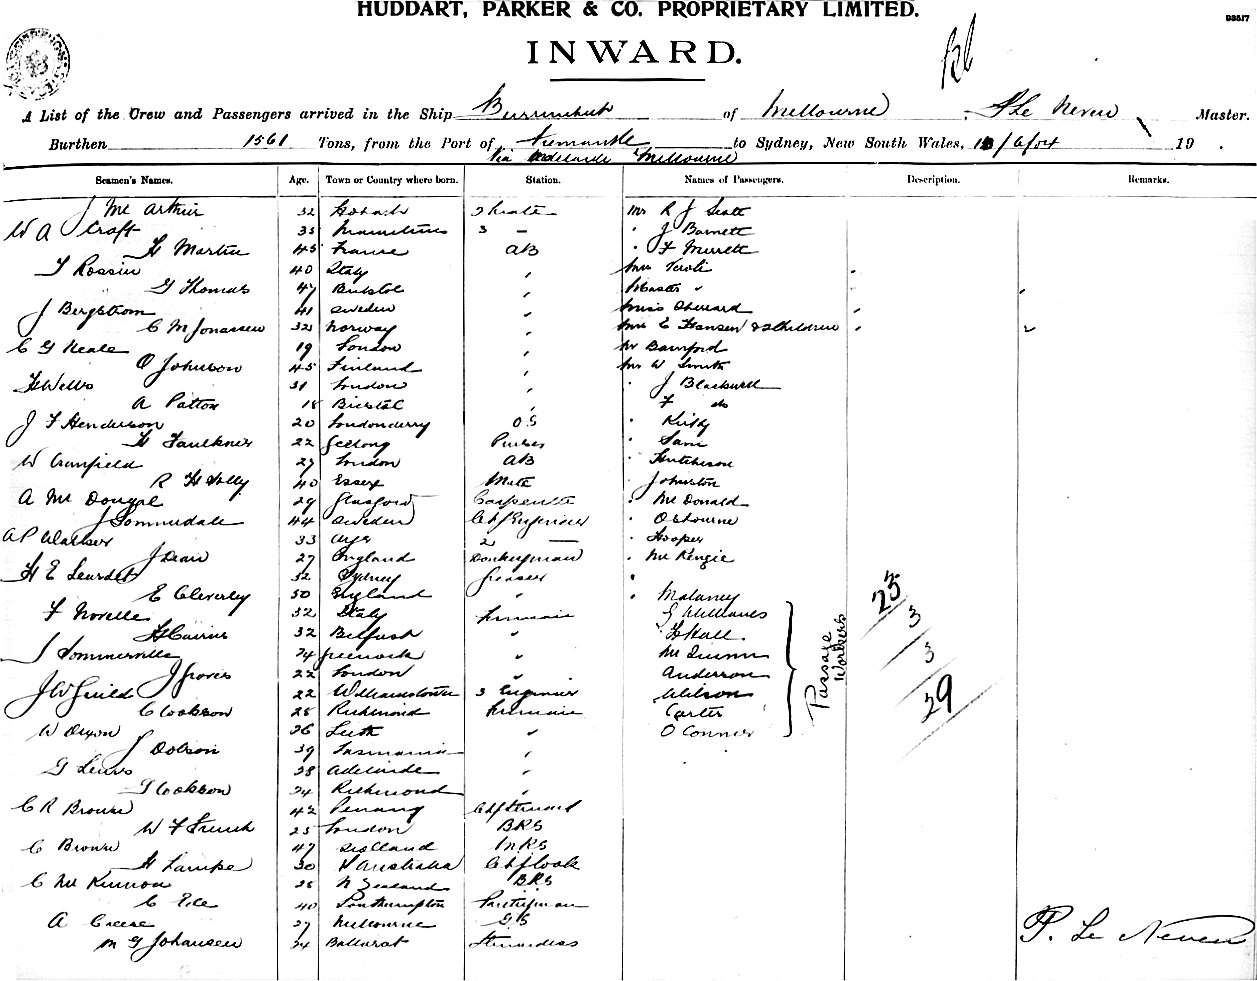 HUDDART, PARKER & CO. PROPRIETARY LIMITED.
93517
INWARD.
A List of the Crew and Passengers arrived in the Ship Burrumbeet of Melbourne, P Le Neven Master.
Burthen 1561 Tons, from the Port of Fremantle to Sydney, New South Wales, /6/04 19 .
Via Adelaide Melbourne
Seamen's Names. Age. Town or Country where born. Station. Names of Passengers. Description. Remarks.
J Mc Arthur 32 Hobart 2 Mate Mr R J Scott
W A Croft 35 3 - J Barnett
H Martin 45 France AB F Merrett
F Rossin 40 Italy Mrs Teroli
G Thomas 47 Bristol Master "
J Bergstrom 41 Sweden Miss
C M Jonassen 32 Norway Mrs E Hansen & 2 Children 2
C G Neale 19 London Mr Bamford
O Johnson 45 Finland Mr W Smith
H Wells 31 London J Blackwell
A Patton 18 Bristol F do
J F Henderson 20 Londonderry OS Kirby
H Faulkner 22 Geelong Purser Sam
W Cranfield 27 London AB Hutchison
R H Holly 40 Essex Mate Johnston
A Mc Dougal 29 Carpenter Mc Donald
J Sommerdale 44 Sweden Chf Engineer Osbourne
A P Walker 33 Ayr 2 — Hooper
J Dean 27 England Donkeyman Mc Kenzie
H E 32 Sydney Greaser
E Cleverly 30 England " Malaney
F Novelle 32 Italy Fireman G Williams
H Cairns 32 Belfast " H Hall
J Sommerville 24 Greenock " Mc Quinn
J Groves 22 London " Anderson
J W Guild 22 Williamstown 3 Engineer Wilson
C Cookson 28 Richmond Fireman Carter
W Dixon 26 Leith " O Conner
Passage Workers
23
3
3
29
J Dobson 39 Tasmania
G Lewis 28 Adelaide
T Cookson 24 Richmond
C R Brown 42 Penang Chf Steward
W F French 25 London BRS
C Brown 47 Scotland
H Lampe 30 Australia Chf Cook
C Mc Kinnon 28 N Zealand BRS
C Ede 40 Southampton Pantryman
A Creese 27 Melbourne GS
M G Johansen 24 Ballarat Stewardess
P. Le Neven